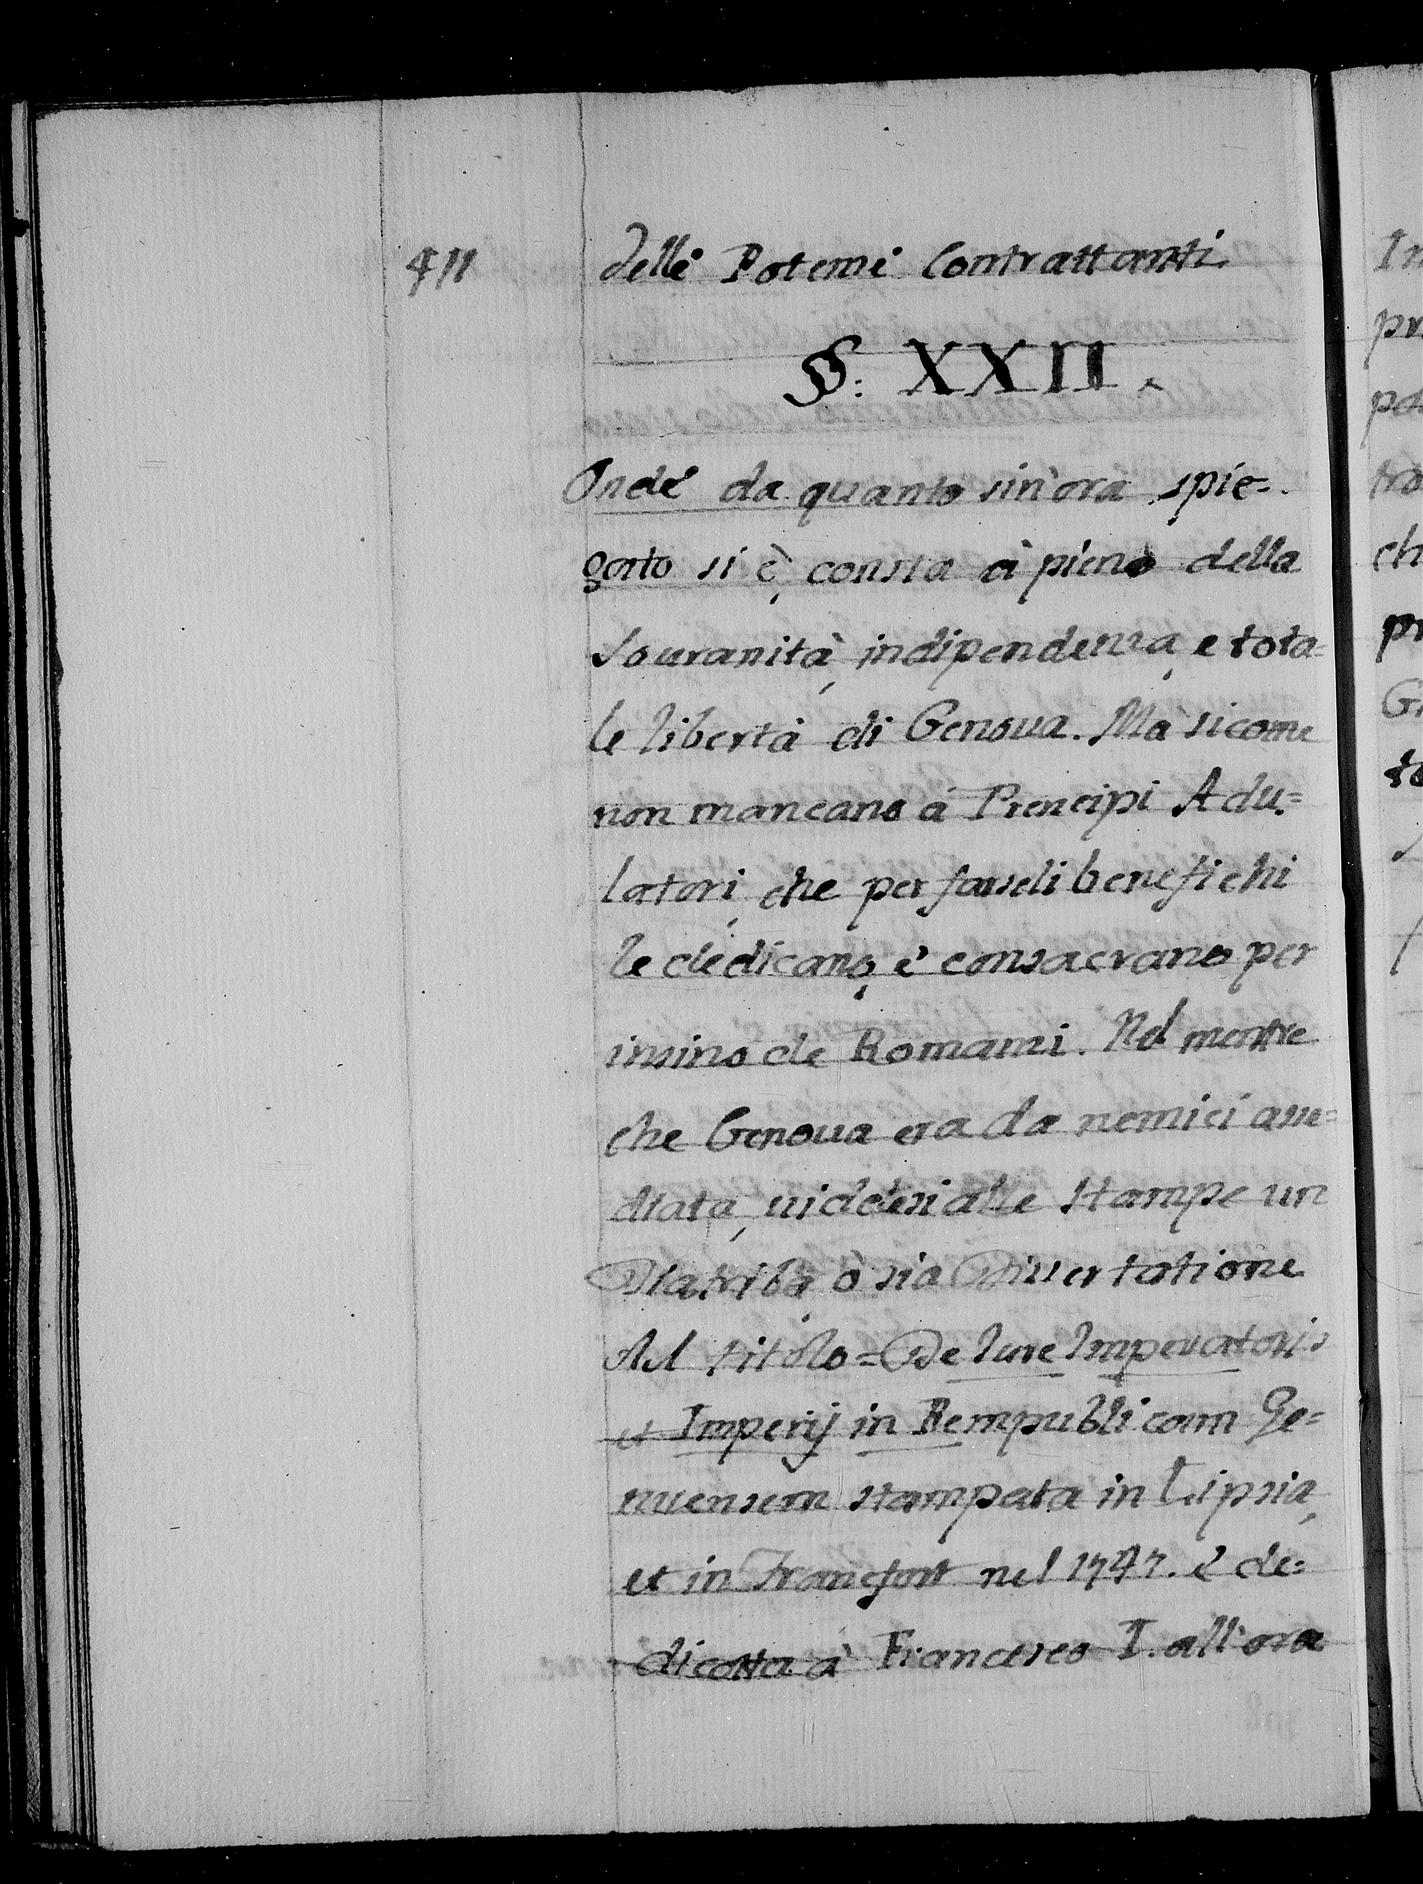 411
delle Potenze Contrattanti.
§: XXII.
Onde da quanto sin'ora spie=
gato si è, consta à pieno della
Souranità, indipendenza, e tota=
le libertà di Genoua. Mà sicome
non mancano à Prencipi Adu=
latori, che per farseli benefichi
le dedicano, è consacrano per
insino de Romanzi. Nel mentre
che Genoua era da nemici asse=
diata, uiddesi alle stampe un
Diatriba, ò sia Dissertatione
Al titolo = De Iure Imperatoris
et Imperij in Rempublicam Ge=
nuensem stampata in Lipsia,
et in Francfort nel 1747. è de=
dicata à Francesco I. all'ora
In
pr
po
tra
ch
pr
G
to